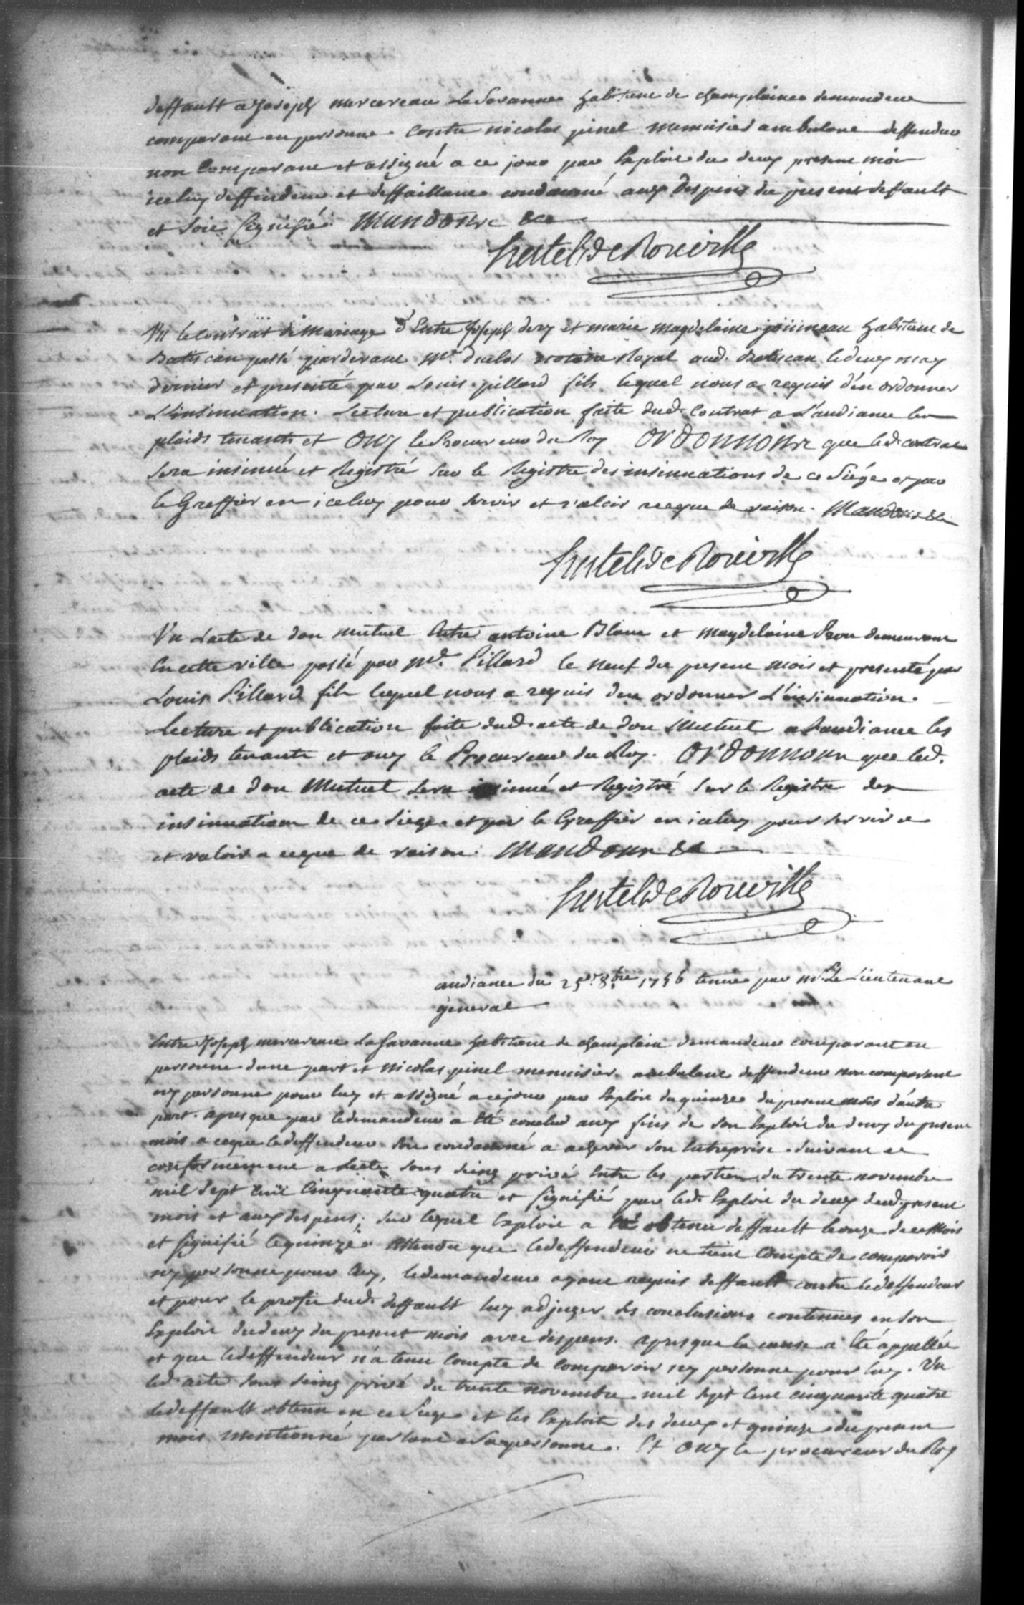 deffault a Joseph mercereau La Savanne habitant de champlaine demandeur
comparant en personne. Contre nicolas pinel Menuisier ambulant deffendeur
non Comparant et assigné a ce jour par Exploit du deux present mois
iceluy deffendeur et deffaillant condamné aux depens du present deffault
et soit signifié Mandons &c
hertel de Rouville
Vu le Contrat de Mariage d'Entre Joseph dery et marie magdelaine jouineau habitant de
Batiscan passé pardevant Me. duclos notaire Royal aud. Batiscan le deux may
dernier et presenté par Louis pillard fils lequel nous a requis d'en ordonner
L'insinuation. Lecture et publication faite dud. Contrat a L'audiance les
plaids tenants et Ouy le Procureur du Roy Ordonnons que led. contrat
sera insinué et Registré sur le Registre des insinuations de ce Siége et par
le Greffier en iceluy pour servir et valoir ce que de raison. Mandons &c
hertel de Rouville
Vu L'acte de don mutuel Entre antoine Blanc et magdelaine demeurant
En cette ville passé par Me. Pillard le neuf du present mois et presenté par
Louis Pillard fils lequel nous a requis d'en ordonner L'insinuation.
Lecture et publication faite dud. acte de don Mutuel a L'audiance les
plaids tenants et ouy le Procureur du Roy. Ordonnons que led.
acte de don Mutuel sera insinué et Registré sur le Registre des
insinuations de ce Siége et par le Greffier en iceluy pour servir
et valoir a ce que de raison. Mandons &c
hertel de Rouville
audiance du 25e. 8bre 1756 tenue par mr. Le Lieutenant
géneral
Entre Joseph mercereau La Savanne habitant de champlain demandeur comparant en
personne d'une part et Nicolas pinel menuisier ambulant deffendeur non comparant
ny personne pour luy et assigné a ce jour par Exploit du quinze du present mois d'autre
part. apres que par le demandeur a Eté conclud aux fins de son Exploit du deux du present
mois a ce que le deffendeur soit condamné a achever son Entreprise suivant et
conformement a L'acte sous seing privé Entre les parties du trente novembre
mil sept Cent Cinquante quatre et signifié par led. Exploit du deux dud. present
mois et aux depens; sur lequel Exploit a Eté obtenu deffault le onze de ce Mois
et signifié le quinze. Attendu que le deffendeur ne tient Compte de comparoir
ny personne pour luy, le demandeur ayant requis deffault contre le deffendeur
et pour le profit dud. deffault luy adjuger les conclusions contenues en son
Exploit du deux du present mois avec depens. apres que la cause a Eté appellée
et que le deffendeur n'a tenu Compte de Comparoir ny personne pour luy. Vu
led. acte sous seing privé du trente novembre mil sept Cent cinquante quatre
le deffault obtenu en ce Siége et les Exploits des deux et quinze du present
mois mentionné parlant a sa personne. Et Ouy le procureur du Roy